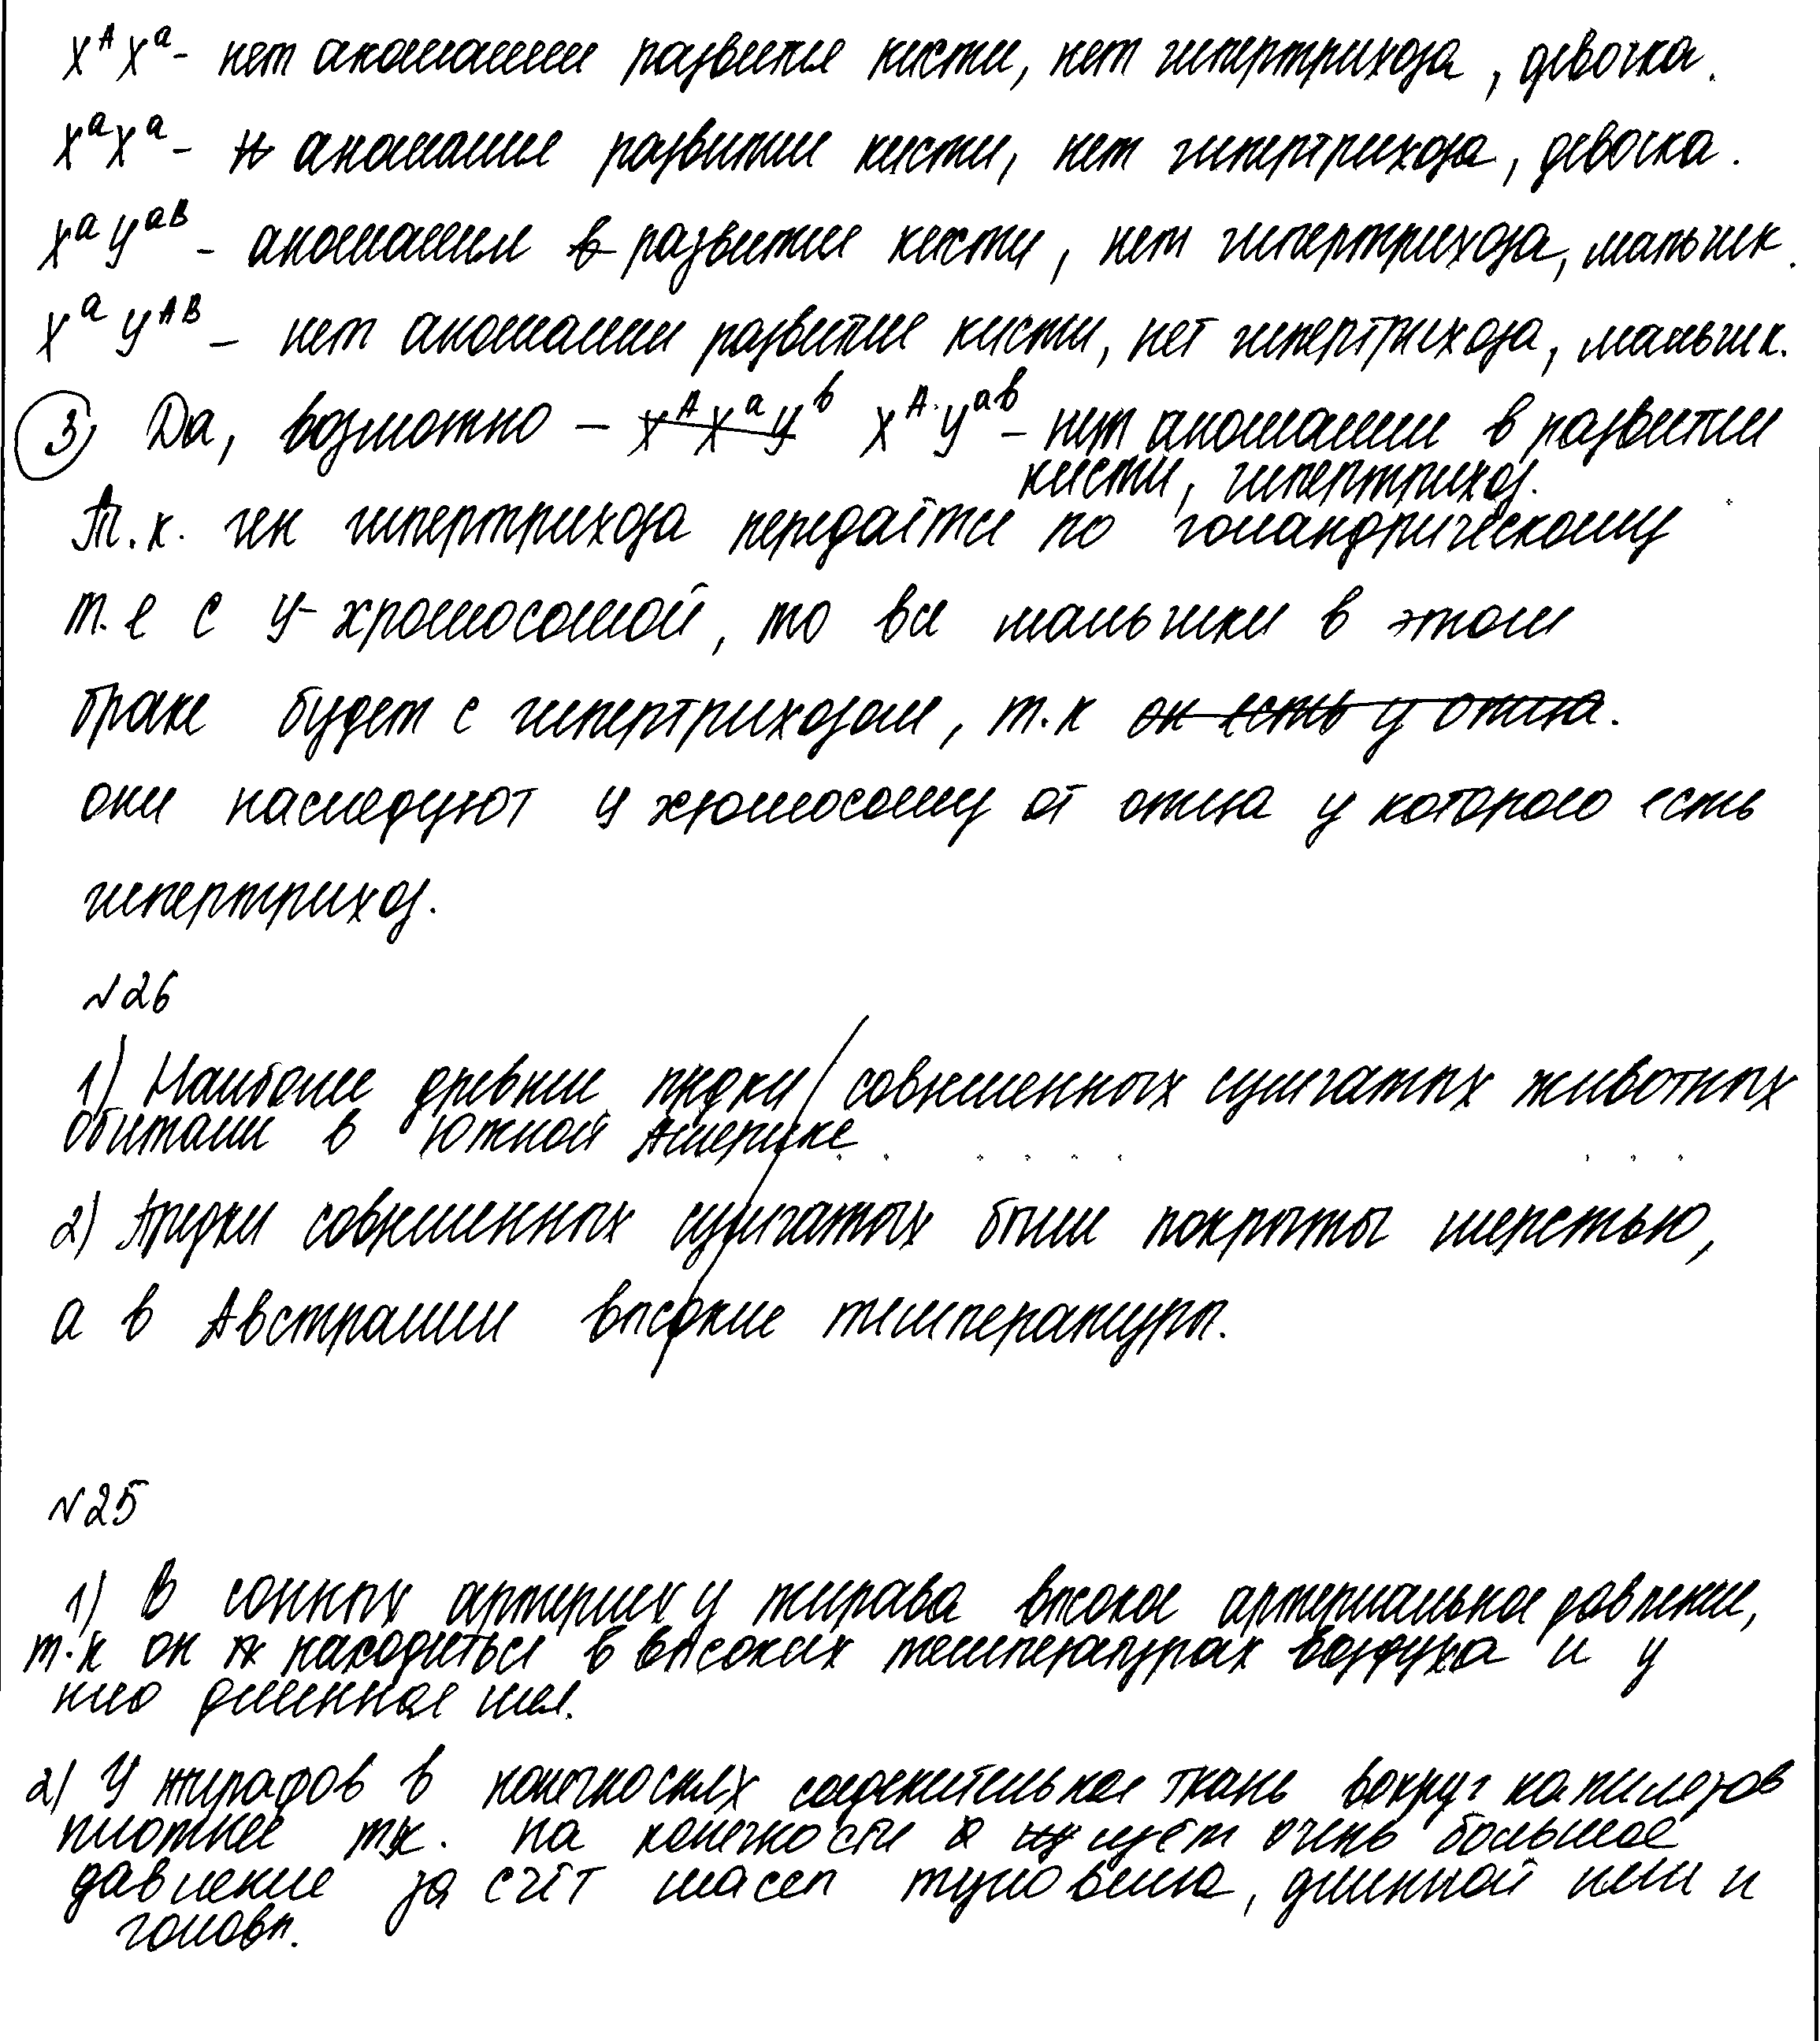 X^A X^a - нет аномалии развития кисти, нет гипертрихоза, девочка.
X^a X^a - н аномалия развитии кисти, нет гипертрихоза, девочка.
X^a У^аВ - аномалия в развитии кисти, нет гипертрихоза, мальчик.
X^a У^АВ - нет аномалии развитие кисти, нет гипертрихоза, мальчик.
3) Да, возможно - X^A X^a У^b X^A У^ab - нет аномалии в развитии
кисти, гипертрихоз.
Т.к. ген гипертрихоза передаётся по голандрическому
т.е с У-хромосомой, то все мальчики в этом
браке будет с гипертрихозом, т.к он есть у отца.
они наследуют У хромосому от отца у которого есть
гипертрихоз.
№26
1) Наиболее древние предки современных сумчатых животных
обитали в Южной Америке
2) Предки современных сумчатых были покрыты шерстью,
а в Австралии высокие температуры.
№25
1) В сонных артериях у жирава высокое артериальное давление,
т.к он находиться в высоких температурах воздуха и у
него длинная шея.
2) У жирафов в конечностях соединительная ткань вокруг капиляров
плотнее т.к. на конечности идёт очень большое
давление за счёт массы туловища, длинной шеи и
головы.